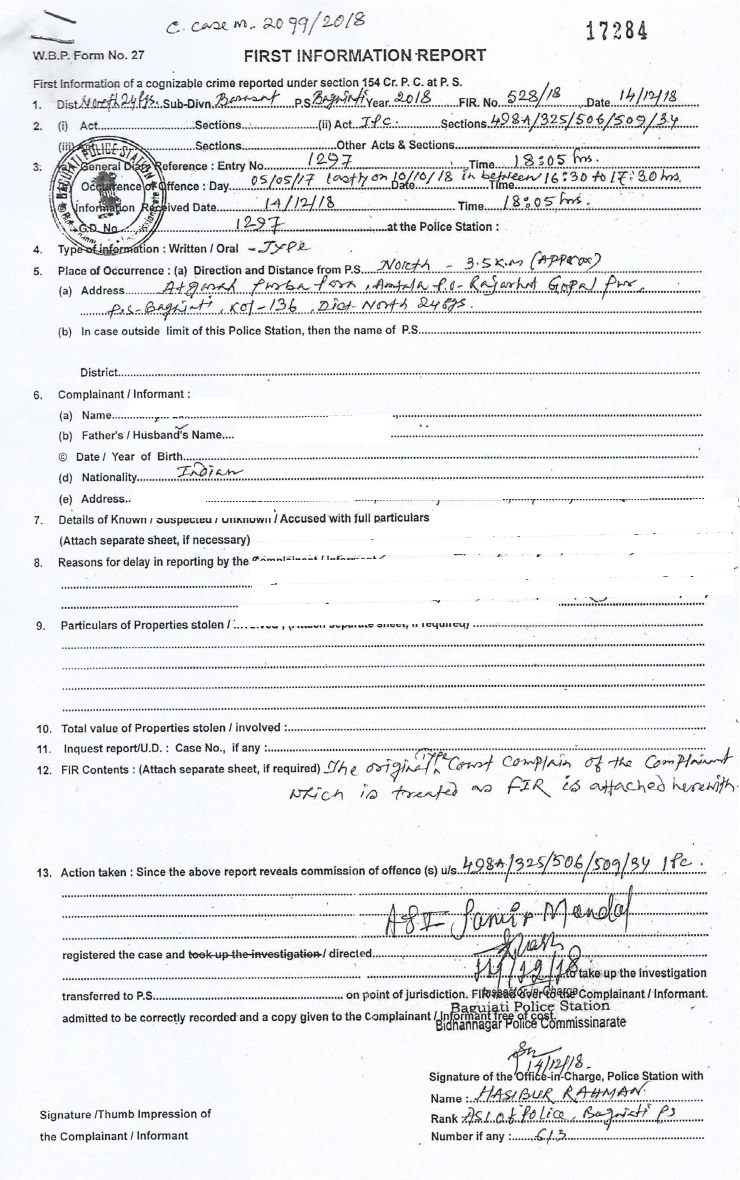 C. Case No. 2099/2018
17284
W.B.P. Form No. 27
FIRST INFORMATION REPORT
First Information of a cognizable crime reported under section 154 Cr. P. C. at P. S.
1. Dist. North 24 Pgs. Sub-Divn. Barasat P.S. Baguiati Year. 2018 FIR. No. 528/18 Date 14/12/18
2. (i) Act Sections (ii) Act. IPC. Sections. 498A/325/506/509/34
(iii) Sections Other Acts & Sections
3. General Diary Reference : Entry No. 1297 Time 18:05 hrs.
Occurrence of Offence : Day 05/05/17 lastly on 10/10/18 Date in between Time 16:30 to 17:30 hrs.
Information Received Date 14/12/18 Time 18:05 hrs.
G.D. No. 1297 at the Police Station :
BAGUIATI POLICE STATION
4. Type of information : Written / Oral - Type
5. Place of Occurrence : (a) Direction and Distance from P.S. North - 3.5 K.m (Approx)
(a) Address Atghara Purba Para, P.O- Rajarhat Gopal Pur,
P.S- Baguiati, Kol-136, Dist North 24 Pgs.
(b) In case outside limit of this Police Station, then the name of P.S.
District
6. Complainant / Informant :
(a) Name
(b) Father's / Husband's Name
© Date / Year of Birth
(d) Nationality Indian
(e) Address
7. Details of Known / Suspected / Unknown / Accused with full particulars
(Attach separate sheet, if necessary)
8. Reasons for delay in reporting by the Complainant / Informant
9. Particulars of Properties stolen / involved ; (Attach separate sheet, if required)
10. Total value of Properties stolen / involved :
11. Inquest report/U.D. : Case No., if any :
12. FIR Contents : (Attach separate sheet, if required) The original Type Court Complain of the Complainant
which is treated as FIR is attached herewith.
13. Action taken : Since the above report reveals commission of offence (s) u/s. 498A/325/506/509/34 IPC.
ASI Samir Mondal
registered the case and took up the investigation / directed
14/12/18 to take up the investigation
Inspector-in-Charge
transferred to P.S. on point of jurisdiction. FIR read over to the Complainant / Informant.
Baguiati Police Station
admitted to be correctly recorded and a copy given to the Complainant / Informant free of cost.
Bidhannagar Police Commissinarate
14/12/18.
Signature of the Office-in-Charge, Police Station with
Name : HASIBUR RAHMAN
Signature /Thumb Impression of
Rank ASI of Police, Baguiati PS
the Complainant / Informant
Number if any : 613